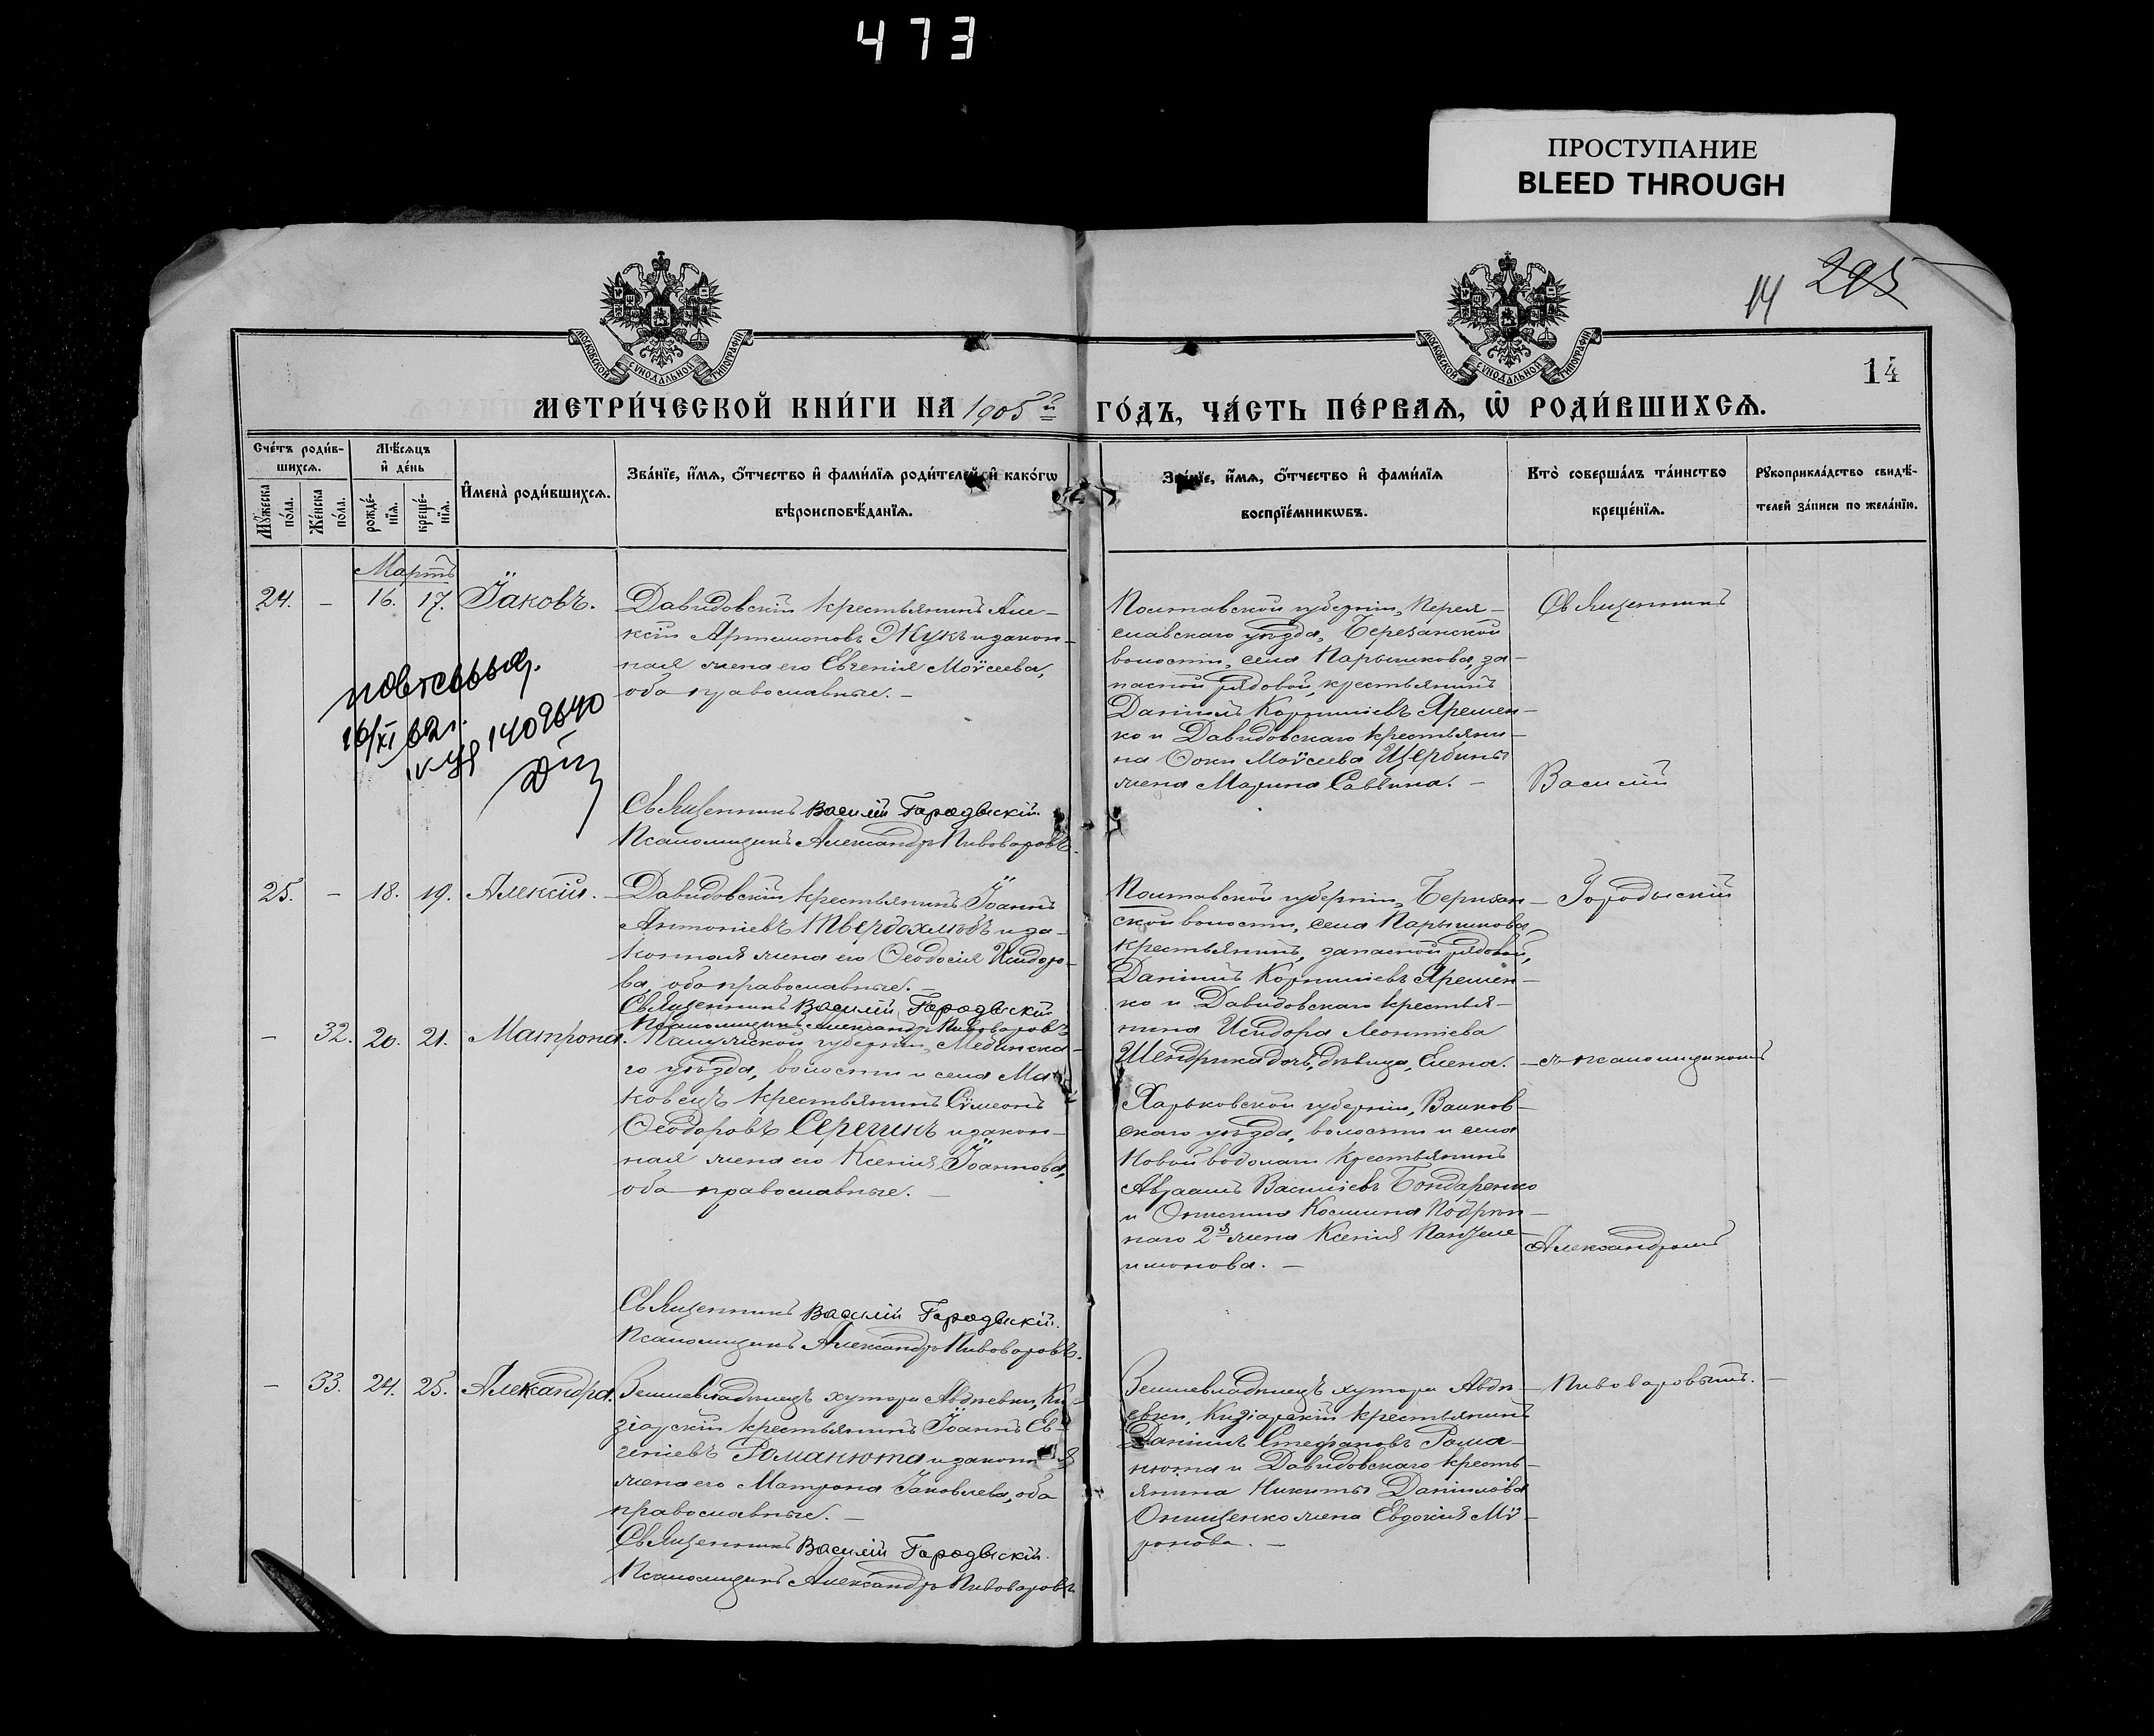 473
ПРОСТУПАНИЕ
BLEED THROUGH
14 295
14
МОСКОВСКОЙ СѴНОДАЛЬНОЙ ТИПОГРАФІИ
МОСКОВСКОЙ СѴНОДАЛЬНОЙ ТИПОГРАФІИ
МЕТРИ́ЧЕСКОЙ КНИ́ГИ НА 1905й ГО́ДЪ, ЧА́СТЬ ПЕ́РВАѦ, Ѡ РОДИ́ВШИХСѦ.
Сче́тъ роди́в-
шихсѧ.
Мѹжеска по́ла.
Же́нска по́ла.
Мѣ́сѧцъ
и҆ де́нь
рожде́-
нїѧ.
креще́-
нїѧ.
И҆мена̀ роди́вшихсѧ.
Зва́нїе, и҆́мѧ, ѻ҆́тчество и҆ фами́лїѧ роди́телей, и҆ како́гѡ
вѣроисповѣ́данїѧ.
Зва́нїе, и҆́мѧ, ѻ҆́тчество и҆ фами́лїѧ
воспрїе́мникѡвъ.
Кто̀ соверша́лъ та́инство
креще́нїѧ.
Рѹкоприкла́дство свидѣ́-
телей за́писи по жела́нїю.
Мартъ
24. – 16. 17. Їаковъ.
Давидовскій крестьянинъ Але-
ксій Артемоновъ Жукъ и закон-
ная жена его Евгенія Моѵсеева,
оба православные. –
Священникъ Василій Городыскій.
Псаломщикъ Александръ Пивоваровъ.
16/XI 62г.
1409640
Полтавской губерніи, Перея-
славскаго уѣзда, Березанской
волости, села Парышкова, за-
пасной рядовой, крестьянинъ
Даніилъ Корниліевъ Яремен-
ко и Давидовскаго крестьяни-
на Ѳоки Моѵсеева Щербины
жена Марина Саввина. –
Священникъ
Василій
25. – 18. 19. Алексій. –
Давидовскій крестьянинъ Їоаннъ
Антоніевъ Твердохлѣбъ и за-
конная жена его Ѳеодосія Исидоро-
ва, оба православные. –
Священникъ Василій Городыскій
Псаломщикъ Александръ Пивоваровъ
Полтавской губерніи, Березан-
ской волости, села Парышкова,
крестьянинъ, запасной рядовой,
Даніилъ Корниліевъ Яремен-
ко и Давидовскаго крестья-
нина Исидора Леонтіева
Шендрика дочь, дѣвица, Елена. –
Городыскій
съ псаломщикомъ
– 32. 20. 21. Матрона.
Калужской губерніи, Медынска-
го уѣзда, волости и села Ма-
ковецъ крестьянинъ Сѵмеонъ
Ѳеодоровъ Серегинъ и закон-
ная жена его Ксенія Їоаннова,
оба православные. –
Священникъ Василій Городыскій.
Псаломщикъ Александръ Пивоваровъ.
Харьковской губерніи, Валков-
скаго уѣзда, волости и села
Новой водолаги крестьянинъ
Авраамъ Василіевъ Бондаренко
наго 2й жена Ксенія Пантеле-
имонова. –
Александромъ
– 33. 24. 25. Александра.
Землевладѣлецъ хутора Авдѣевки, Ки-
зіарскій крестьянинъ Їоаннъ Ев-
геніевъ Романюта и законная
жена его Матрона Їаковлева, оба
православные. –
Священникъ Василій Городыскій.
Псаломщикъ Александръ Пивоваровъ
Землевладѣлецъ хутора Авдѣ-
евки, Кизіарскій крестьянинъ
Даніилъ Стефановъ Рома-
нюта и Давидовскаго кресть-
янина Никиты Даніилова
Онищенко жена Евдокія Мѵ-
ронова. –
Пивоваровымъ. –